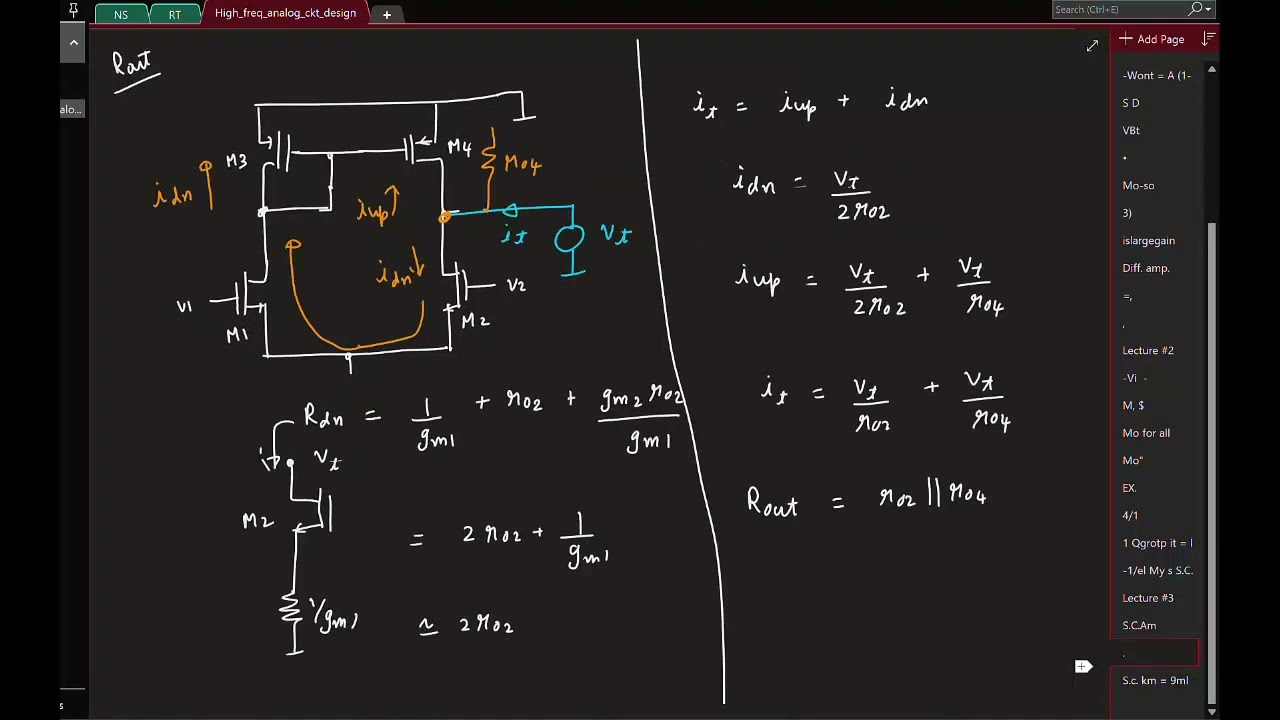 NS
RT
High_freq_analog_ckt_design
+
Search (Ctrl+E)
Rout
M3
M4
r04
idn
iup
it
Vt
idn
V1
V2
M1
M2
Rdn = 1/gm1 + r02 + gm2 r02/gm1
i
Vt
M2
= 2r02 + 1/gm1
1/gm1
≃ 2r02
it = iup + idn
idn = Vt/2r02
iup = Vt/2r02 + Vt/r04
it = Vt/r02 + Vt/r04
Rout = r02 || r04
alo...
s
+ Add Page
-Wont = A (1-
S D
VBt
•
Mo-so
3)
islargegain
Diff. amp.
=,
,
Lecture #2
-Vi -
M, $
Mo for all
Mo"
EX.
4/1
1 Qgrotp it = l
-1/el My s S.C.
Lecture #3
S.C.Am
.
S.c. km = 9ml